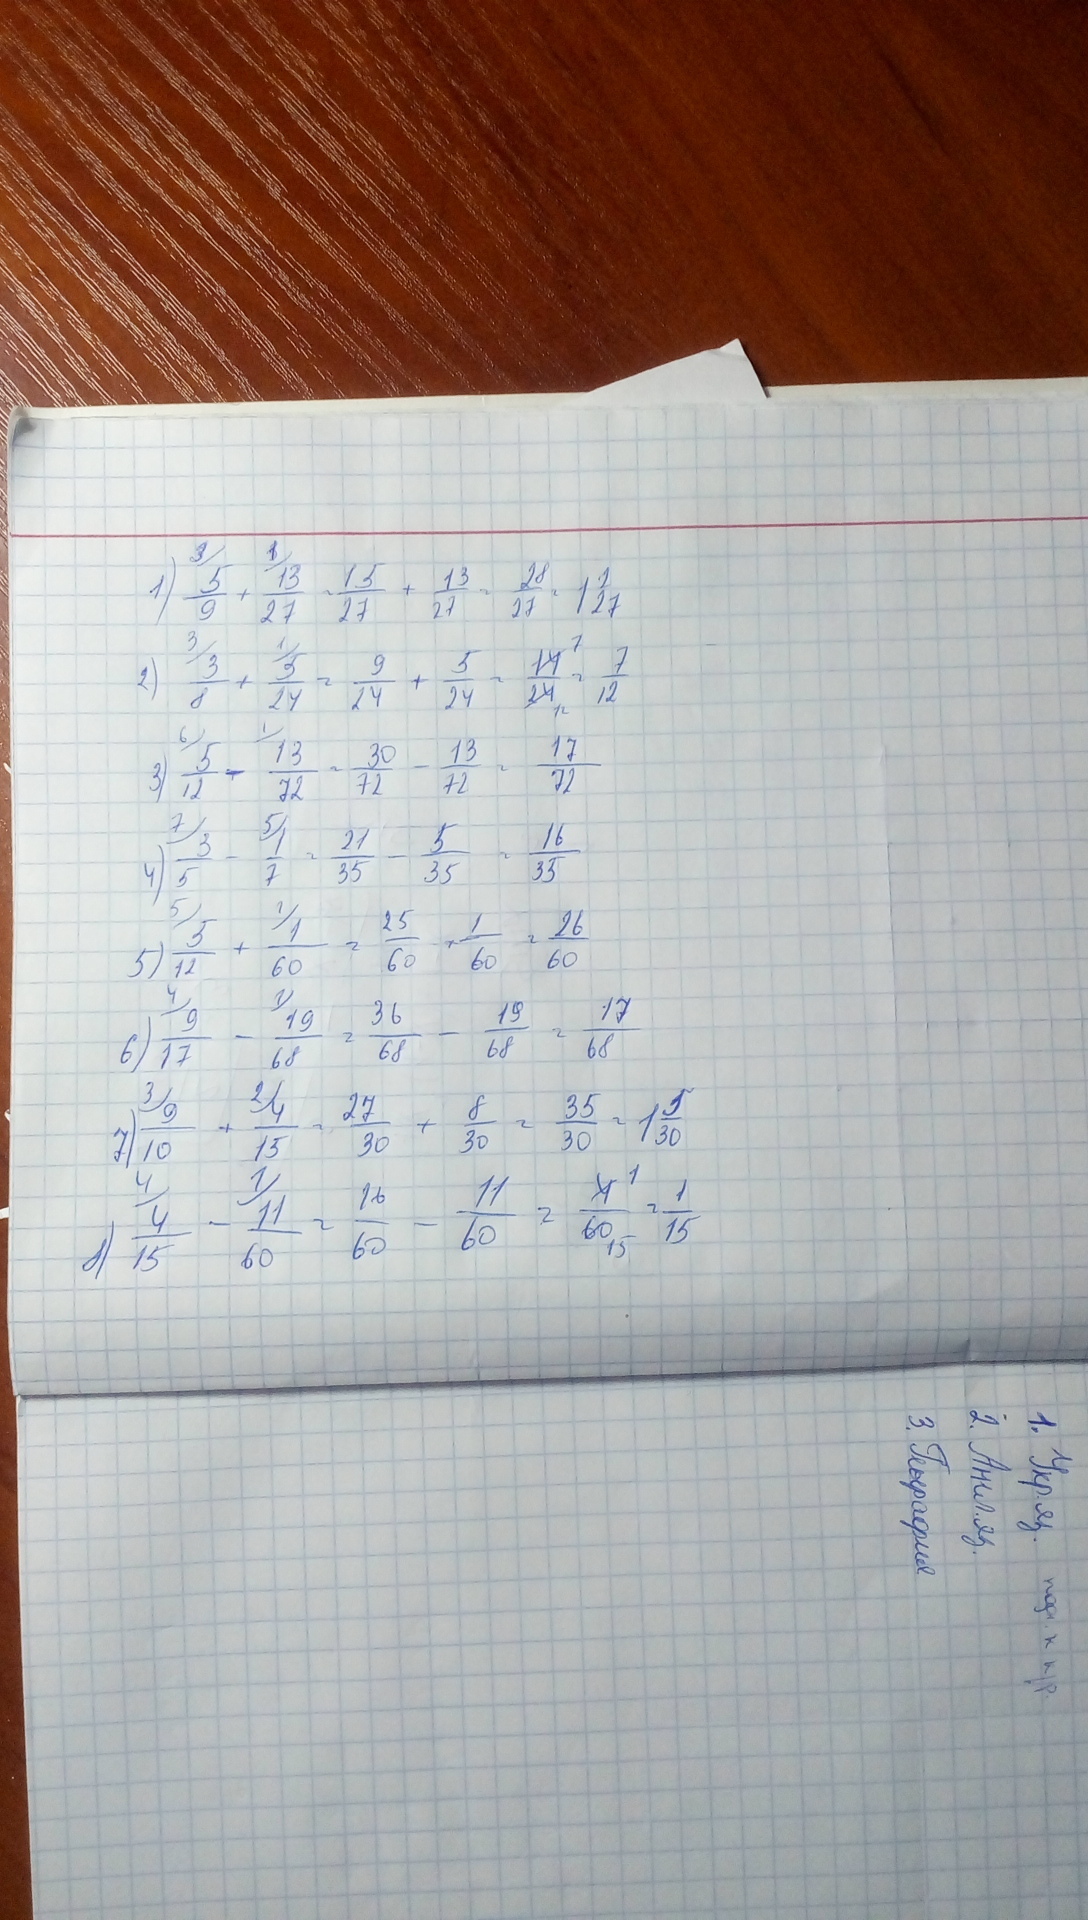 1) 3/ 5/9 + 1/ 13/27 = 15/27 + 13/27 = 28/27 = 1 1/27
2) 3/ 3/8 + 1/ 5/24 = 9/24 + 5/24 = 14/24 7 12 = 7/12
3) 6/ 5/12 - 1/ 13/72 = 30/72 - 13/72 = 17/72
4) 7/ 3/5 - 5/ 1/7 = 21/35 - 5/35 = 16/35
5) 5/ 5/12 + 1/ 1/60 = 25/60 + 1/60 = 26/60
6) 4/ 9/17 - 1/ 19/68 = 36/68 - 19/68 = 17/68
7) 3/ 9/10 + 2/ 4/15 = 27/30 + 8/30 = 35/30 = 1 5/30
8) 4/ 4/15 - 1/ 11/60 = 16/60 - 11/60 = 4/60 1 15 = 1/15
1. Укр.яз. под. к к/р.
2. Англ.яз.
3. География